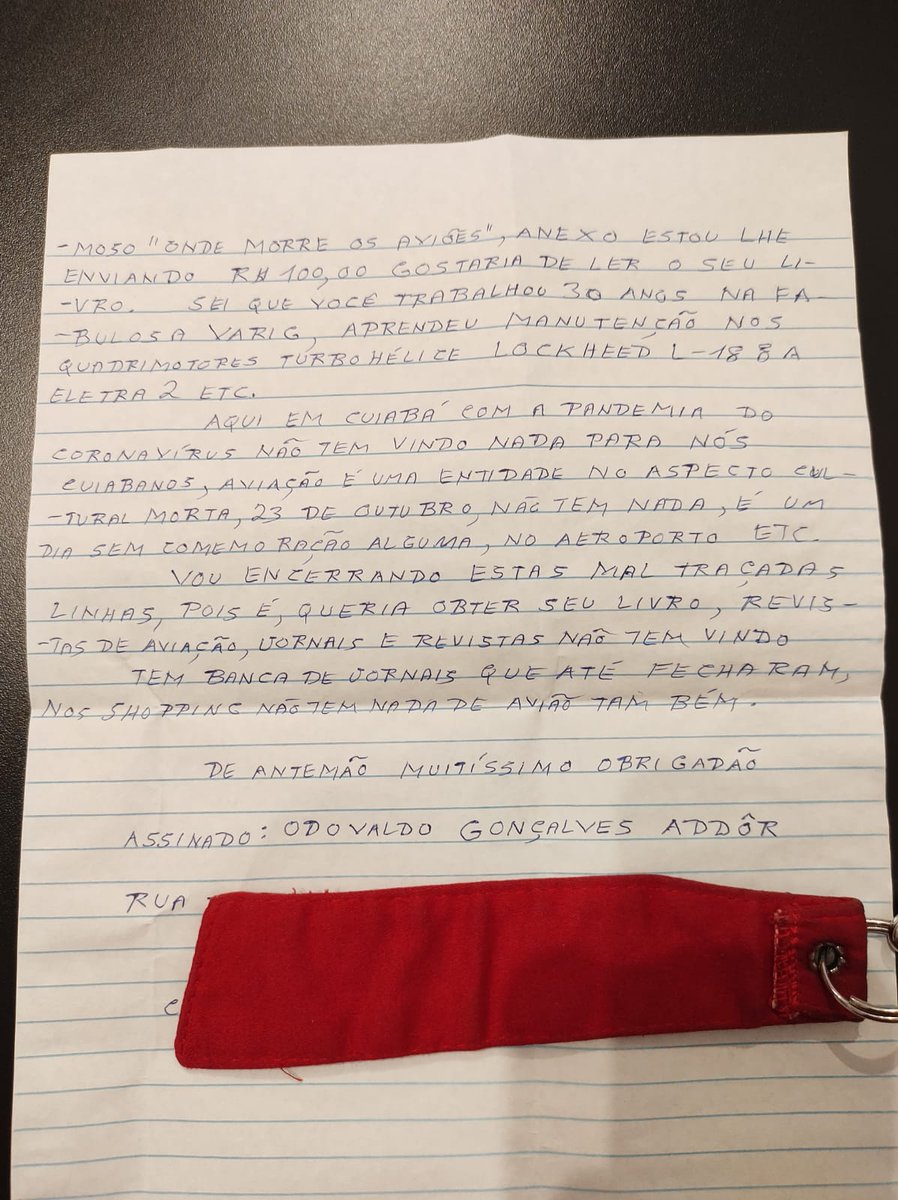 -MOSO "ONDE MORRE OS AVIÕES", ANEXO ESTOU LHE
ENVIANDO R$ 100,00 GOSTARIA DE LER O SEU LI-
-VRO. SEI QUE VOCÊ TRABALHOU 30 ANOS NA FA-
-BULOSA VARIG, APRENDEU MANUTENÇÃO NOS
QUADRIMOTORES TURBOHÉLICE LOCKHEED L-188 A
ELETRA 2 ETC.
AQUI EM CUIABÁ COM A PANDEMIA DO
CORONAVÍRUS NÃO TEM VINDO NADA PARA NÓS
CUIABANOS, AVIAÇÃO É UMA ENTIDADE NO ASPECTO CUL-
-TURAL MORTA, 23 DE OUTUBRO, NÃO TEM NADA, É UM
DIA SEM COMEMORAÇÃO ALGUMA, NO AEROPORTO ETC.
VOU ENCERRANDO ESTAS MAL TRAÇADAS
LINHAS, POIS É, QUERIA OBTER SEU LIVRO, REVIS-
-TAS DE AVIAÇÃO, JORNAIS E REVISTAS NÃO TEM VINDO
TEM BANCA DE JORNAIS QUE ATÉ FECHARAM,
NOS SHOPPING NÃO TEM NADA DE AVIÃO TAMBÉM.
DE ANTEMÃO MUITÍSSIMO OBRIGADÃO
ASSINADO: ODOVALDO GONÇALVES ADDÔR
RUA